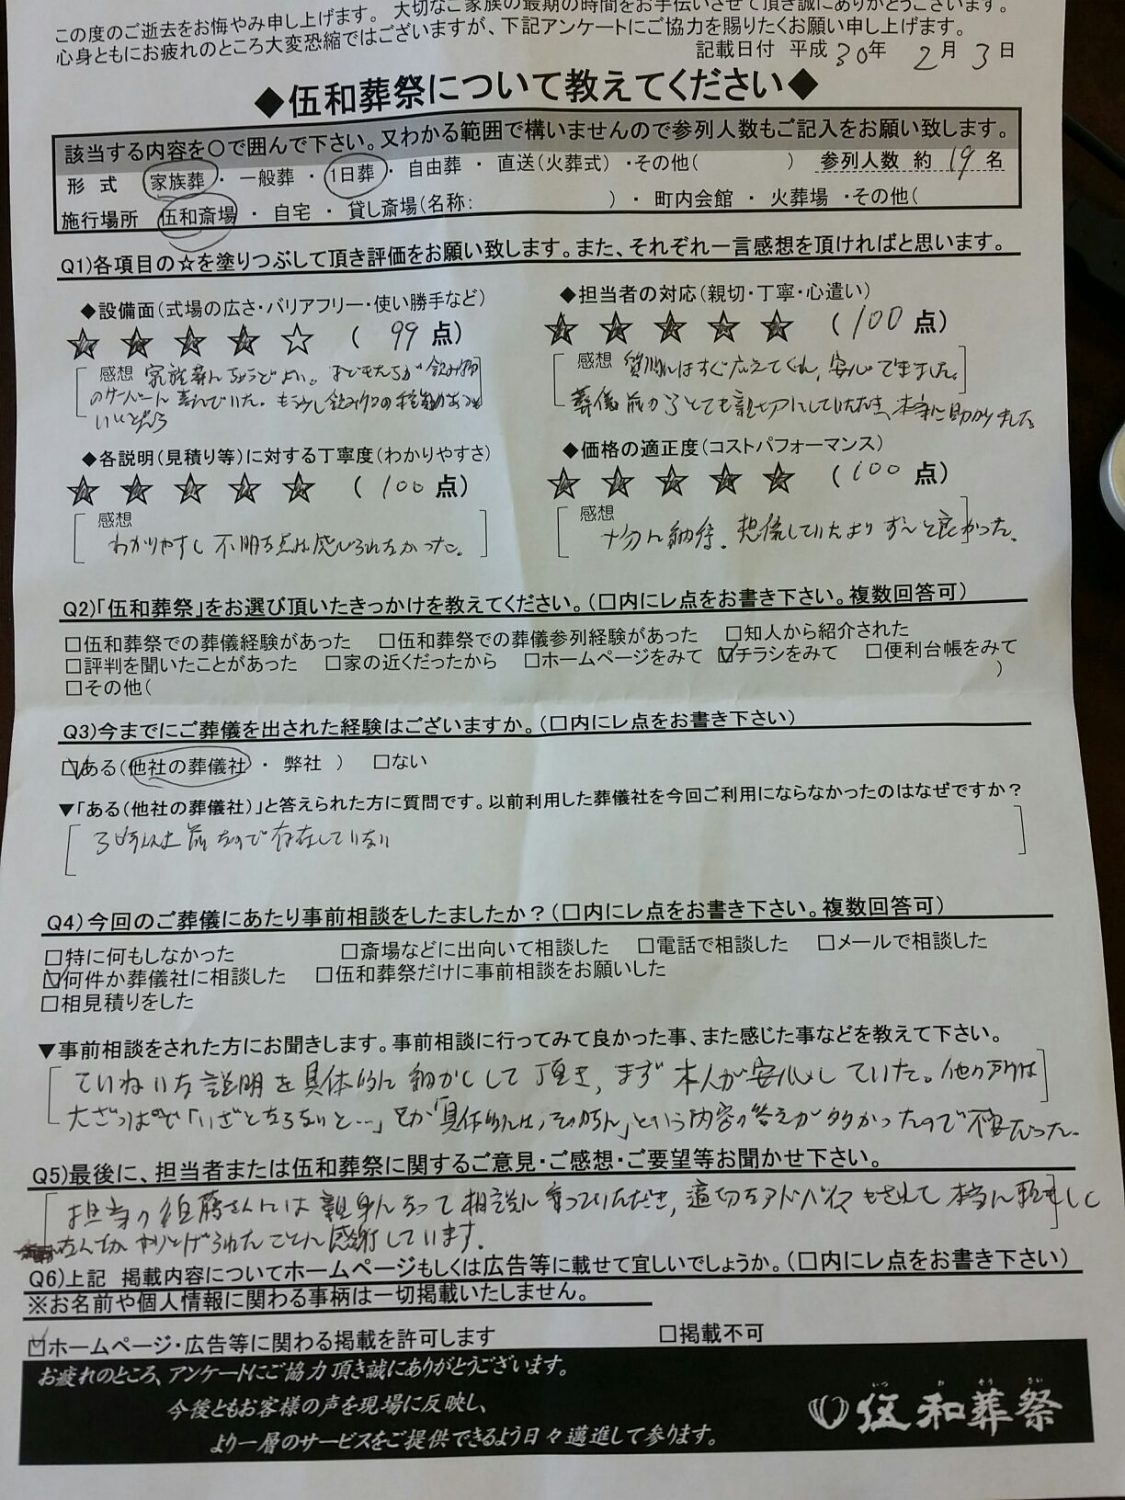 この度のご逝去をお悔やみ申し上げます。大切なご家族の最期の時間をお手伝いさせて頂き誠にありがとうございます。
心身ともにお疲れのところ大変恐縮ではございますが、下記アンケートにご協力を賜りたくお願い申し上げます。
記載日付 平成30年 2月 3日
◆伍和葬祭について教えてください◆
該当する内容を○で囲んで下さい。又わかる範囲で構いませんので参列人数もご記入をお願い致します。
形 式 家族葬・一般葬・1日葬・自由葬・直送(火葬式)・その他( ) 参列人数 約 19 名
施行場所 伍和斎場・自宅・貸し斎場(名称: )・町内会館・火葬場・その他(
Q1)各項目の☆を塗りつぶして頂き評価をお願い致します。また、それぞれ一言感想を頂ければと思います。
◆設備面(式場の広さ・バリアフリー・使い勝手など)
★★★★☆ ( 99 点)
感想 家族葬にちょうどよい。子どもたちが飲み物
のサーバーに喜んでいた。もう少し飲み物の種類があっても
いいと思う
◆担当者の対応(親切・丁寧・心遣い)
★★★★★ (100 点)
感想 質問にはすぐ応えてくれ、安心できました。
葬儀前からとても親切にしていただき、本当に助かりました。
◆各説明(見積り等)に対する丁寧度(わかりやすさ)
★★★★★ ( 100 点)
感想
わかりやすく不明な点は感じられなかった。
◆価格の適正度(コストパフォーマンス)
★★★★★ (100 点)
感想
十分に納得。想像していたよりず〜と良かった。
Q2)「伍和葬祭」をお選び頂いたきっかけを教えてください。(□内にレ点をお書き下さい。複数回答可)
□伍和葬祭での葬儀経験があった □伍和葬祭での葬儀参列経験があった □知人から紹介された
□評判を聞いたことがあった □家の近くだったから □ホームページをみて ☑チラシをみて □便利台帳をみて
□その他( )
Q3)今までにご葬儀を出された経験はございますか。(□内にレ点をお書き下さい)
☑ある(他社の葬儀社・弊社 ) □ない
▼「ある(他社の葬儀社)」と答えられた方に質問です。以前利用した葬儀社を今回ご利用にならなかったのはなぜですか?
前なので存在していない
Q4)今回のご葬儀にあたり事前相談をしたましたか?(□内にレ点をお書き下さい。複数回答可)
□特に何もしなかった □斎場などに出向いて相談した □電話で相談した □メールで相談した
☑何件か葬儀社に相談した □伍和葬祭だけに事前相談をお願いした
□相見積りをした
▼事前相談をされた方にお聞きします。事前相談に行ってみて良かった事、また感じた事などを教えて下さい。
ていねいな説明を具体的に細かくして頂き、まず本人が安心していた。他の所は
大ざっぱで「いざとならないと…」とか「具体的には、その時に」という内容の答えが多かったので不安だった。
Q5)最後に、担当者または伍和葬祭に関するご意見・ご感想・ご要望等お聞かせ下さい。
担当の 藤さんには親身になって相談に乗っていただき、適切なアドバイスもされて本当に
やりとげられたことに感謝しています。
Q6)上記 掲載内容についてホームページもしくは広告等に載せて宜しいでしょうか。(□内にレ点をお書き下さい)
※お名前や個人情報に関わる事柄は一切掲載いたしません。
☑ホームページ・広告等に関わる掲載を許可します □掲載不可
お疲れのところ、アンケートにご協力頂き誠にありがとうございます。
今後ともお客様の声を現場に反映し、
より一層のサービスをご提供できるよう日々邁進して参ります。
いつ わ そう さい
伍和葬祭